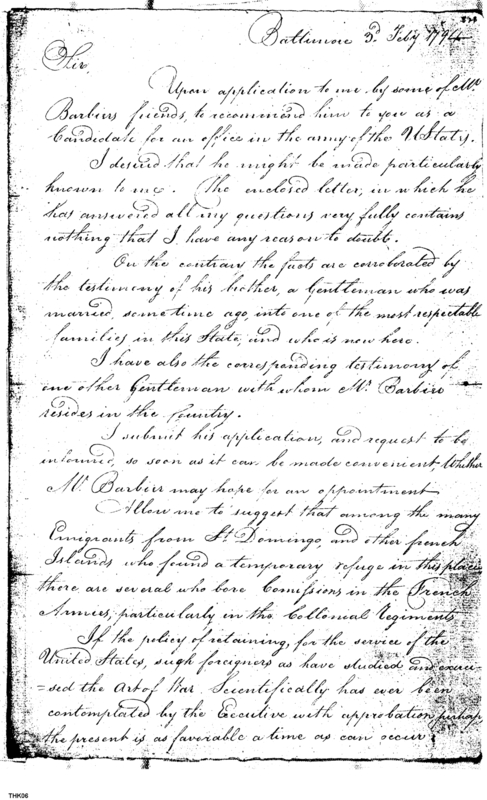 Baltimore 3d. Feby 1794
Sir,
Upon application to me by some of Mr.
Barbiers friends, to recommend him to you as a
Candidate for an office in the army of the UStates.
I desired that he might be made particularly
known to me. The enclosed letter, in which he
has answered all my questions very fully contains
nothing that I have any reason to doubt.
On the contrary the facts are corroborated by
the testimony of his brother, a Gentleman who was
married, some time ago, into one of the most respectable
families in this State, and who is now here.
I have also the corresponding testimony of
one other Gentleman with whom Mr. Barbier
resides in the Country.
I submit his application, and request to be
informed, so soon as it can be made convenient, whether
Mr. Barbier may hope for an appointment
Allow me to suggest that among the many
Emigrants from St. Domingo, and other french
Islands, who found a temporary refuge in this place
there are several who bore Comissions in the French
Armies, particularly in the Collonial Regiments
If the policy of retaining, for the service of the
United States, such foreigners as have studied and exerci-
=sed the Art of War Scientifically has ever been
contemplated by the Executive with approbation, perhaps
the present is as favorable a time as can occur
THK06